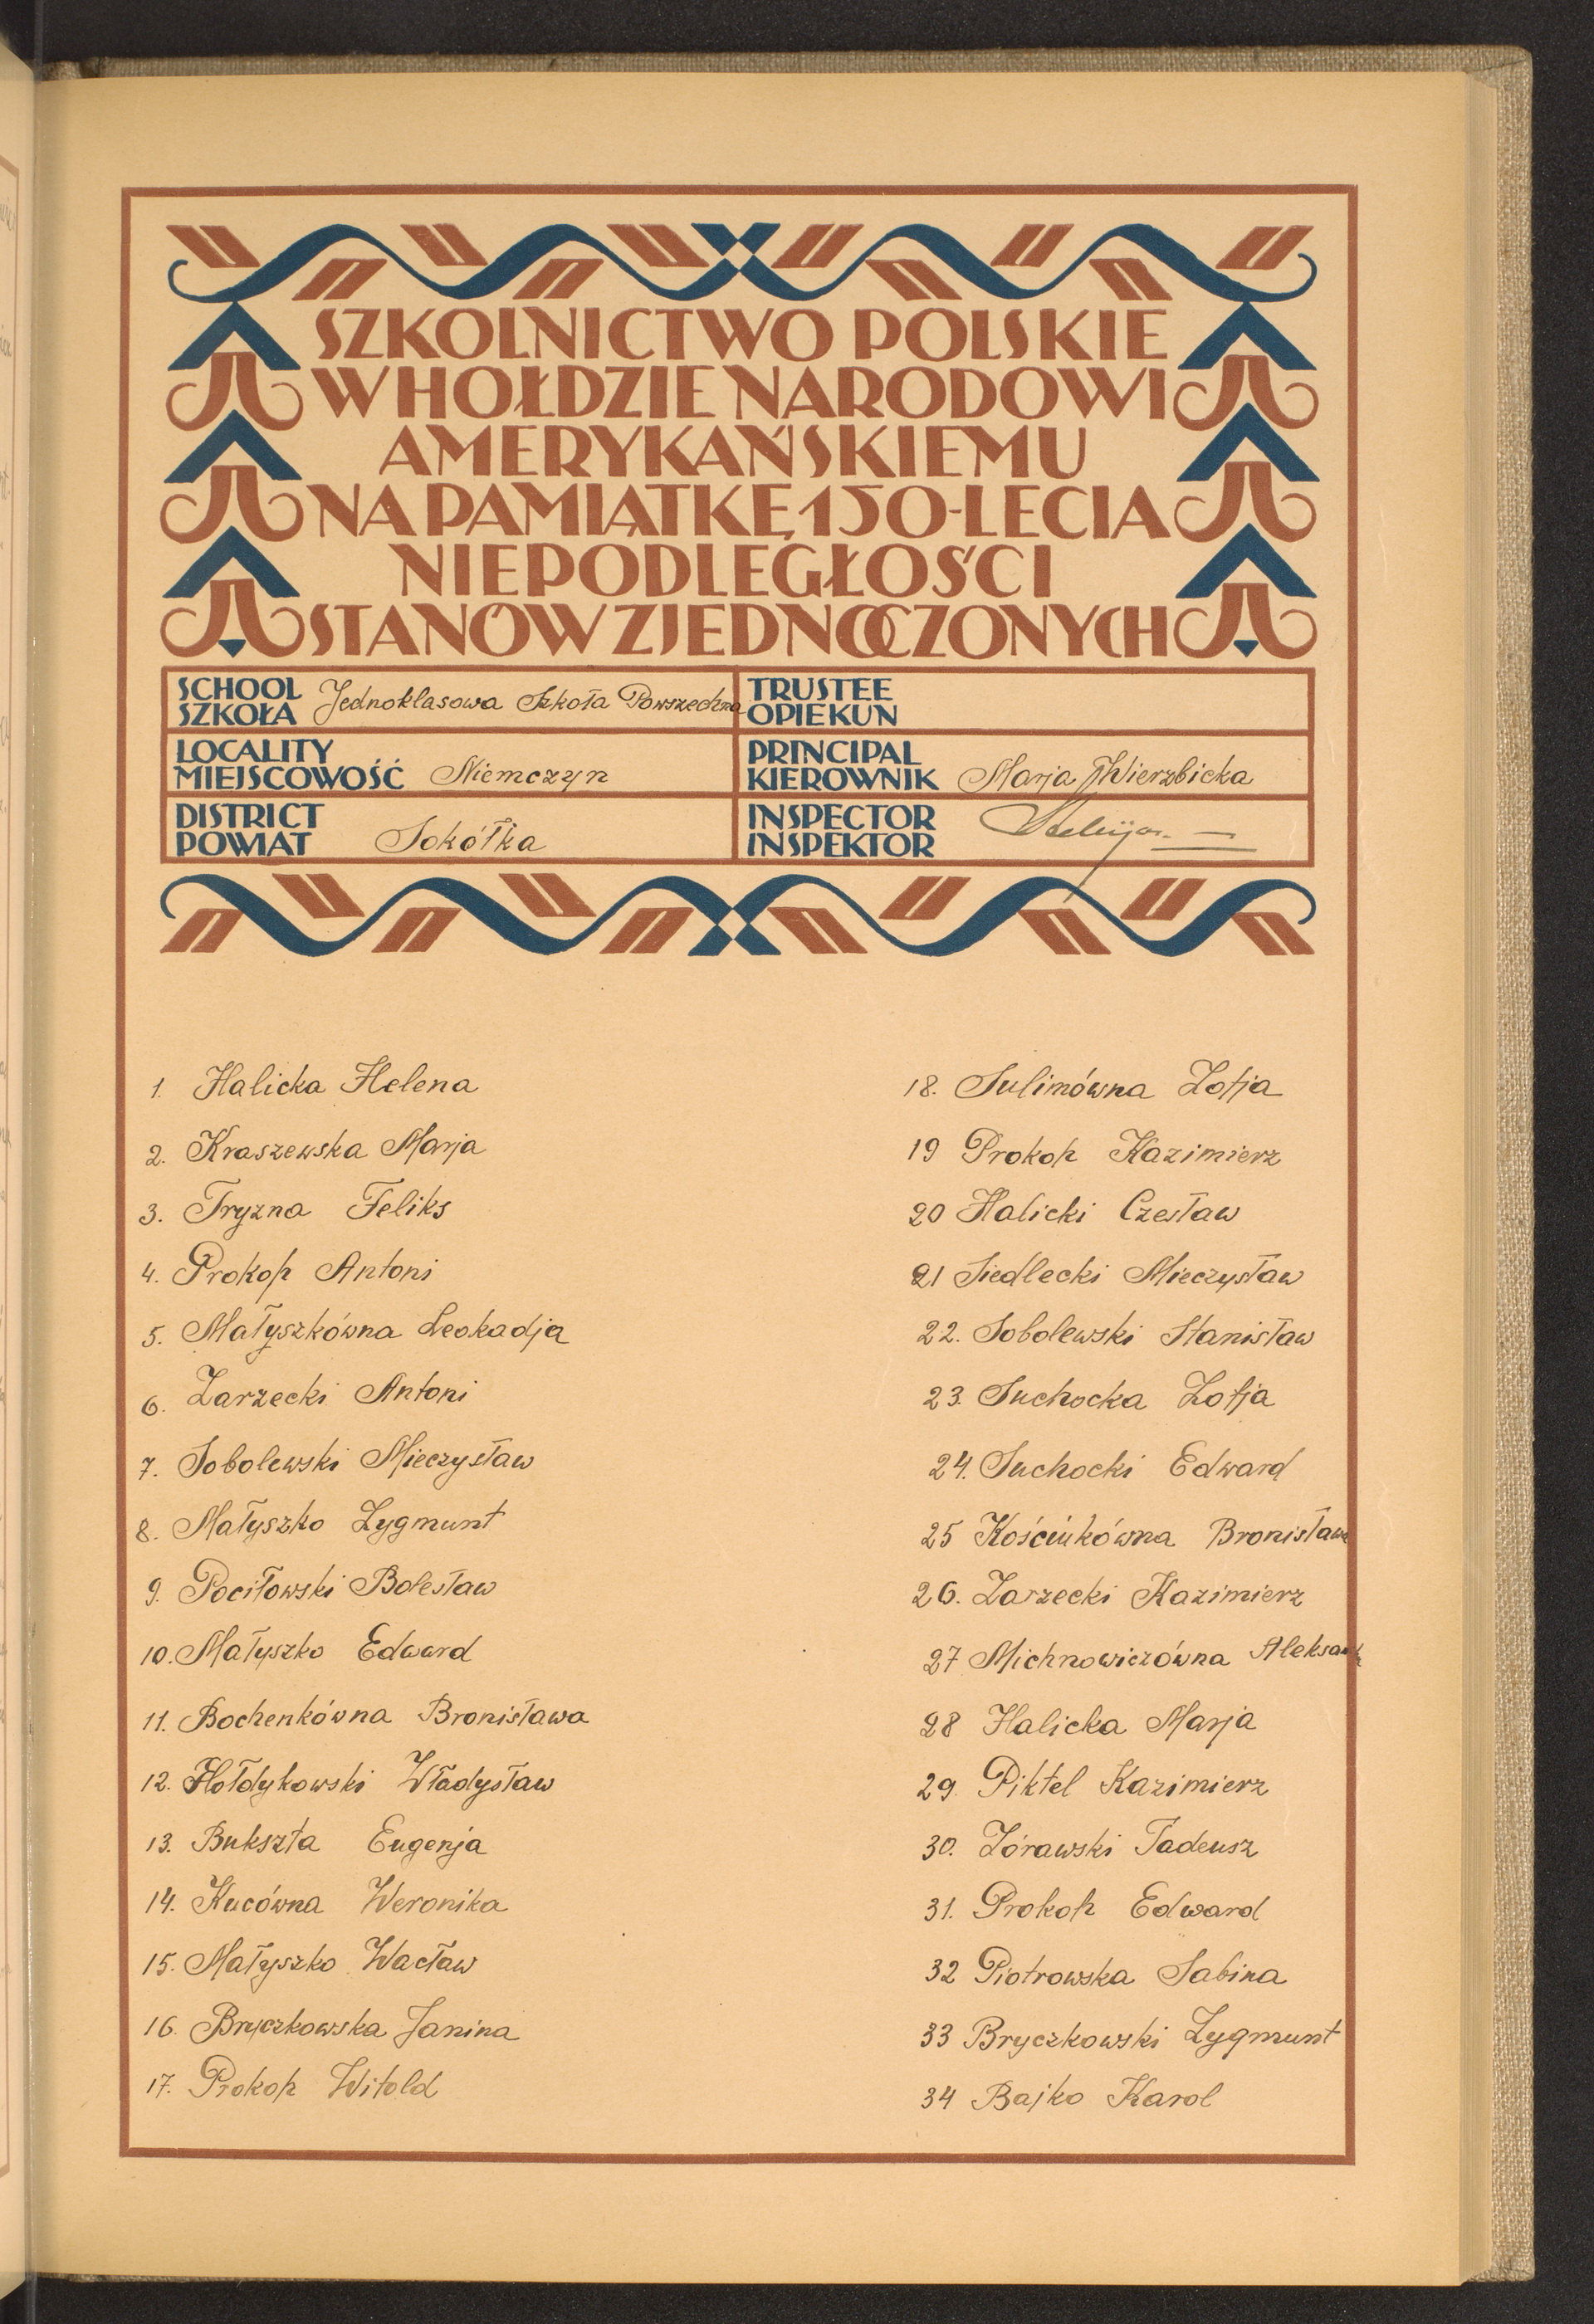 SZKOLNICTWO POLSKIE
W HOŁDZIE NARODOWI
AMERYKAŃSKIEMU
NA PAMIĄTKĘ 150-LECIA
NIEPODLEGŁOŚCI
STANÓW ZJEDNOCZONYCH
SCHOOL
SZKOŁA Jednoklasowa Szkoła Powszechna
TRUSTEE
OPIEKUN
LOCALITY
MIEJSCOWOŚĆ Niemczyn
PRINCIPAL
KIEROWNIK Marja Wierzbicka
DISTRICT
POWIAT Sokółka
INSPECTOR
INSPEKTOR
1. Halicka Helena
2. Kraszewska Marja
3. Tryzna Feliks
4. Prokop Antoni
5. Małyszkówna Leokadja
6. Zarzecki Antoni
7. Sobolewski Mieczysław
8. Małyszko Zygmunt
9. Pociłowski Bolesław
10. Małyszko Edward
11. Bochenkówna Bronisława
12. Hołdykowski Władysław
13. Bukszta Eugenja
14. Kucówna Weronika
15. Małyszko Wacław
16. Bryczkowska Janina
17. Prokop Witold
18. Sulimówna Zofja
19 Prokop Kazimierz
20 Halicki Czesław
21 Siedlecki Mieczysław
22. Sobolewski Stanisław
23. Suchocka Zofja
24. Suchocki Edward
25 Kościukówna Bronisława
26. Zarzecki Kazimierz
27 Michnowiczówna
28 Halicka Marja
29. Piktel Kazimierz
30. Żórawski Tadeusz
31. Prokop Edward
32 Piotrowska Sabina
33 Bryczkowski Zygmunt
34 Bajko Karol